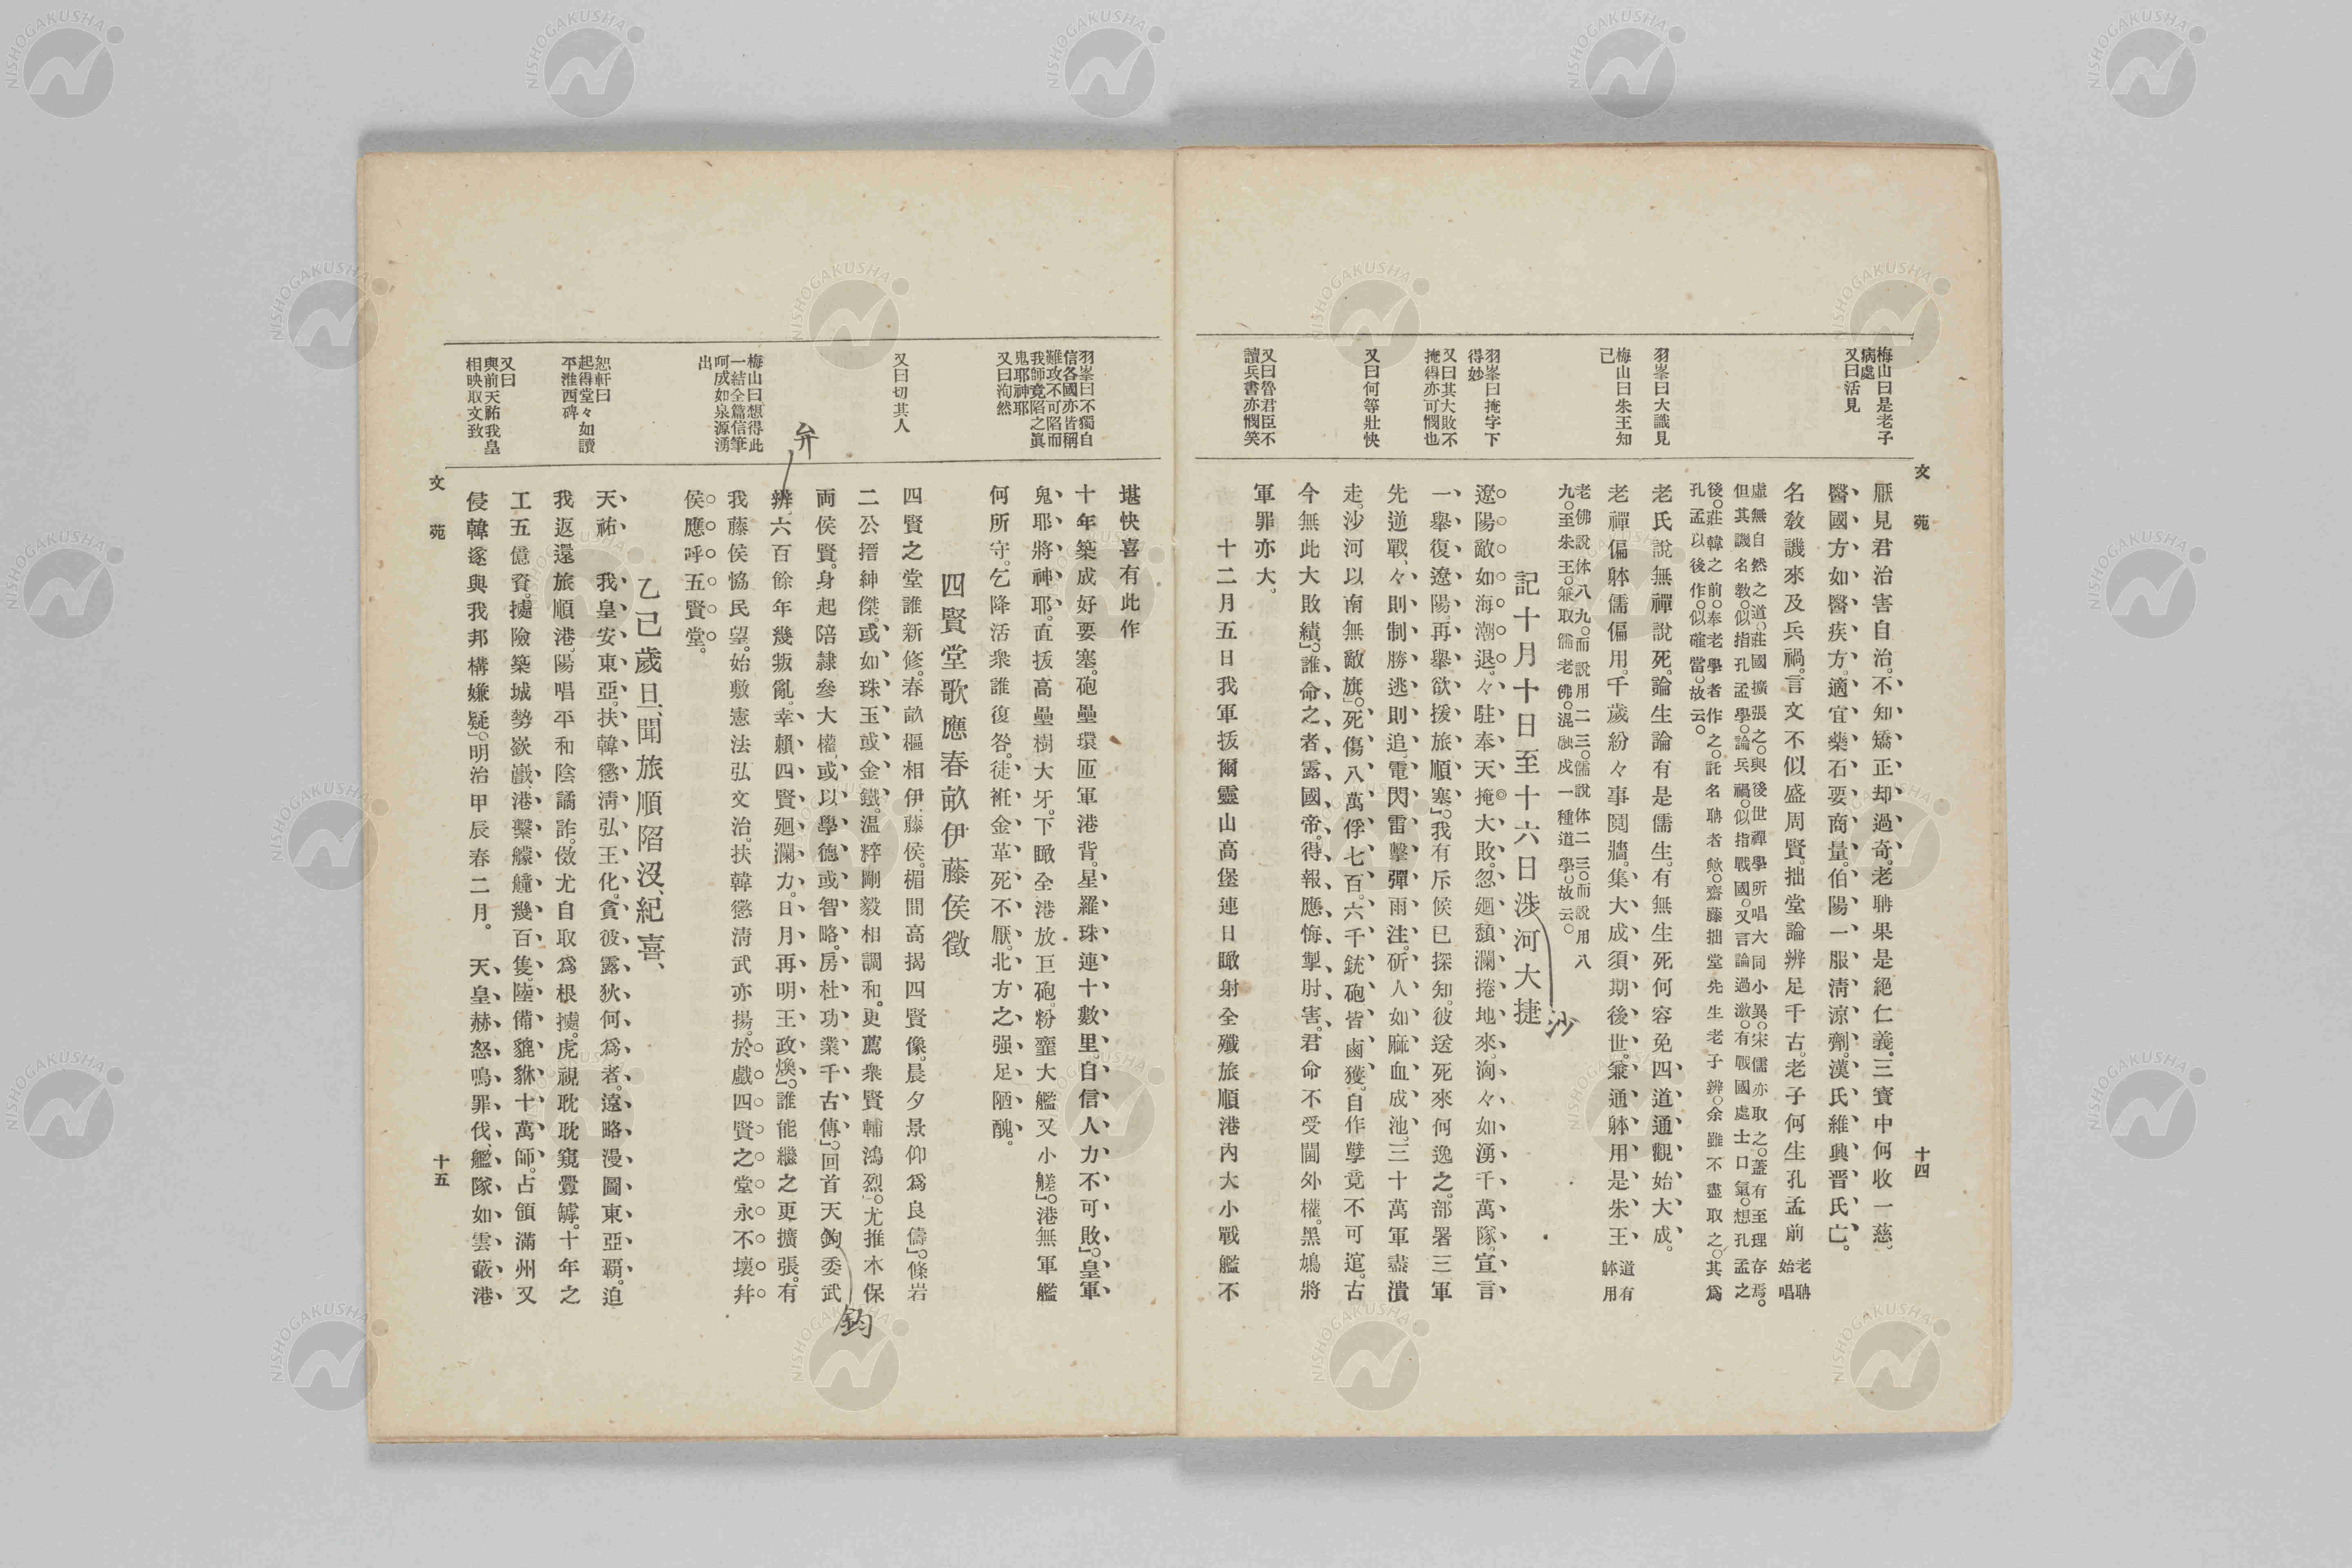 文苑
十四
梅山曰是老子
病處
又曰活見
羽峯曰大識見
梅山曰朱王知
己
羽峯曰掩字下
得妙
又曰其大敗不
掩得亦可憫也
又曰何等壯快
又曰魯君臣不
讀兵書亦憫笑
厭見君治害自治。不知矯正却過奇。老聃果是絕仁義。三寶中何收一慈。
醫國方如醫疾方。適宜藥石要商量。伯陽一服淸涼劑。漢氏維興晋氏亡。
名敎譏來及兵禍。言文不似盛周賢。拙堂論辨足千古。老子何生孔孟前 老聃
始唱
虛無自然之道。莊國擴張之。與後世禪學所唱大同小異。宋儒亦取之。蓋有至理存焉。
但其譏名敎。似指孔孟學。論兵禍。似指戰國。又言論過激。有戰國處士口氣。想孔孟之
後。莊韓之前。奉老學者作之。託名聃者歟。齋藤拙堂先生老子辨。余雖不盡取之。其爲
孔孟以後作。似確當。故云。
老氏說無禪說死。論生論有是儒生。有無生死何容免。四道通觀始大成。
老禪偏躰儒偏用。千歲紛々事鬩牆。集大成須期後世。兼通躰用是朱王 道有
躰用
老佛説体八九。而説用二三。儒說体二三。而説用八
九。至朱王。兼取儒老佛。混融成一種道學。故云。
記十月十日至十六日涉河大捷
沙
遼陽敵如海潮退。々駐奉天掩大敗。忽廻頽瀾捲地來。洶々如湧千萬隊。宣言
一擧復遼陽。再擧欲援旅順塞」。我有斥候已探知。彼送死來何逸之。部署三軍
先逆戰、々則制勝逃則追、電閃雷擊彈雨注。斫人如麻血成池。三十萬軍盡潰
走。沙河以南無敵旗」。死傷八萬俘七百。六千銃砲皆鹵獲。自作孽竟不可逭。古
今無此大敗績」。誰命之者露國帝。得報應悔掣肘害。君命不受閫外權。黑鳩將
軍罪亦大。
十二月五日我軍拔爾靈山高堡連日瞰射全殲旅順港內大小戰艦不
羽峯曰不獨自
信各國亦皆稱
難攻不可陷而
我師竟陷之眞
鬼耶神耶
又曰洵然
又曰切其人
梅山曰想得此
一結全篇信筆
呵成如泉源湧
出
恕軒曰
起得堂々如讀
平淮西碑
又曰
與前天祐我皇
相映取文致
堪快喜有此作
十年築成好要塞。砲壘環匝軍港背。星羅珠連十數里。自信人力不可敗」。皇軍
鬼耶將神耶。直拔高壘樹大牙。下瞰全港放巨砲。粉虀大艦又小艖」。港無軍艦
何所守。乞降活衆誰復咎。徒袵金革死不厭。北方之强足陋醜。
四賢堂歌應春畝伊藤侯徵
四賢之堂誰新修。春畝樞相伊藤侯。楣間高揭四賢像。晨夕景仰爲良儔」。條岩
二公搢紳傑。或如珠玉或金鐵。温粹剛毅相調和。更薦衆賢輔鴻烈」。尤推木保
両侯賢。身起陪隷參大權。或以學德或智略。房杜功業千古傳」。回首天鉤委武
鈞
辨。六百餘年幾叛亂。幸賴四賢廻瀾力。日月再明王政煥」。誰能繼之更擴張。有
弁
我藤侯恊民望。始敷憲法弘文治。扶韓懲淸武亦揚。於戲四賢之堂永不壞。幷
侯應呼五賢堂。
乙己歲旦、聞旅順陷沒、紀喜、
天祐　我皇安東亞。扶韓懲淸弘王化。貪彼露狄何爲者。遠略漫圖東亞覇。迫
我返還旅順港。陽唱平和陰譎詐。倣尤自取爲根據。虎視耽耽窺釁罅。十年之
工五億資。據險築城勢嶔巇。港繫艨艟幾百隻。陸備貔貅十萬師。占領滿州又
侵韓。遂與我邦構嫌疑」。明治甲辰春二月。　天皇赫怒鳴罪伐、艦隊如雲蔽港
文苑
十五